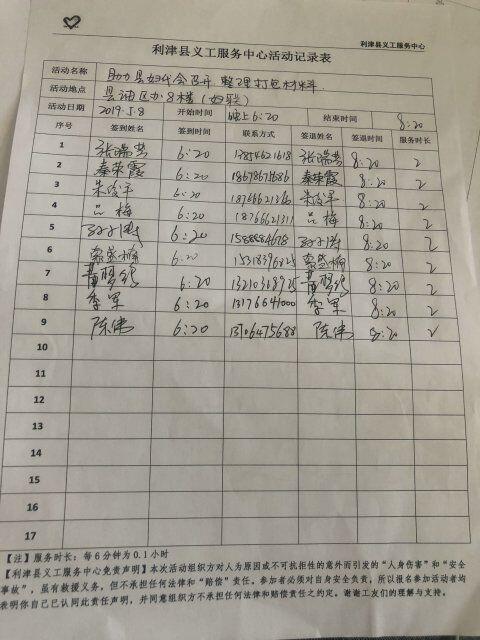 利津县义工服务中心
利津县义工服务中心活动记录表
活动名称 助力县妇代会召开,整理打包材料.
活动地点 县油区办8楼(妇联)
活动日期 2019.5.8 开始时间 晚上6:20 结束时间 8:20
序号 签到姓名 签到时间 联系方式 签退姓名 签退时间 服务时长
1 张瑞芳 6:20 张瑞芳 8:20 2
2 秦荣霞 6:20 秦荣霞 8:20 2
3 6:20 8:20 2
4 吕梅 6:20 吕梅 8:20 2
5 6:20 8:20 2
6 6:20 8:20 2
7 6:20 13210318925 8:20 2
8 李军 6:20 13176641000 李军 8:20 2
9 陈伟 6:20 13706475688 陈伟 8:20 2
10
11
12
13
14
15
16
17
【注】服务时长:每6分钟为0.1小时
【利津县义工服务中心免责声明】本次活动组织方对人为原因或不可抗拒性的意外而引发的“人身伤害”和“安全
事故”,虽有救援义务,但不承担任何法律和“赔偿”责任。参加者必须对自身安全负责,所以报名参加活动者均
表明你自己已认同此责任声明,并同意组织方不承担任何法律和赔偿责任之约定。谢谢工友们的理解与支持。